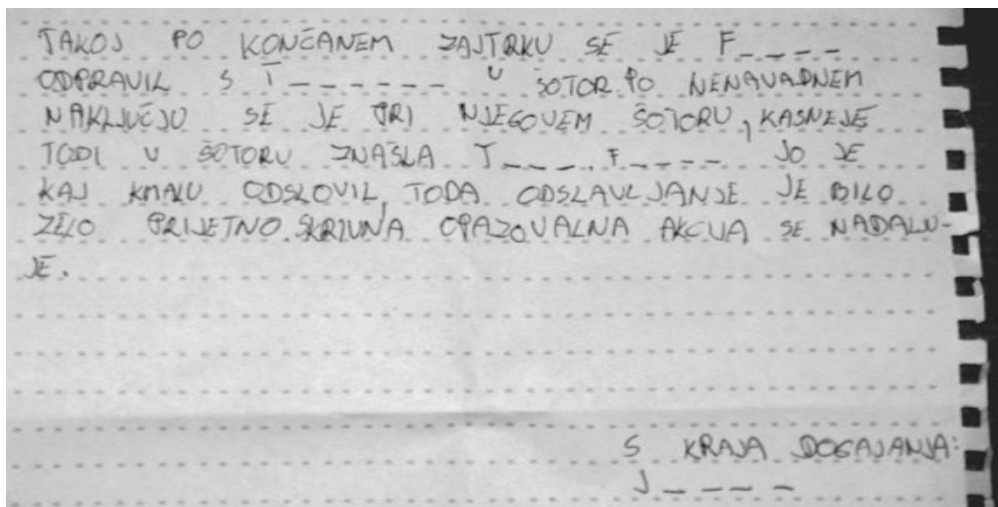 TAKOJ PO KONČANEM ZAJTRKU SE JE F____
ODPRAVIL S T_______ V ŠOTOR. PO NENAVADNEM
NAKLJUČJU SE JE PRI NJEGOVEM ŠOTORU, KASNEJE
TODI V ŠOTORU ZNAŠLA T____. F____ JO JE
KAJ KMALU ODSLOVIL, TODA ODSLAVLJANJE JE BILO
ZELO PRIJETNO. SKRIVNA OPAZOVALNA AKCIJA SE NADALJU-
JE.
S KRAJA DOGAJANJA:
J____